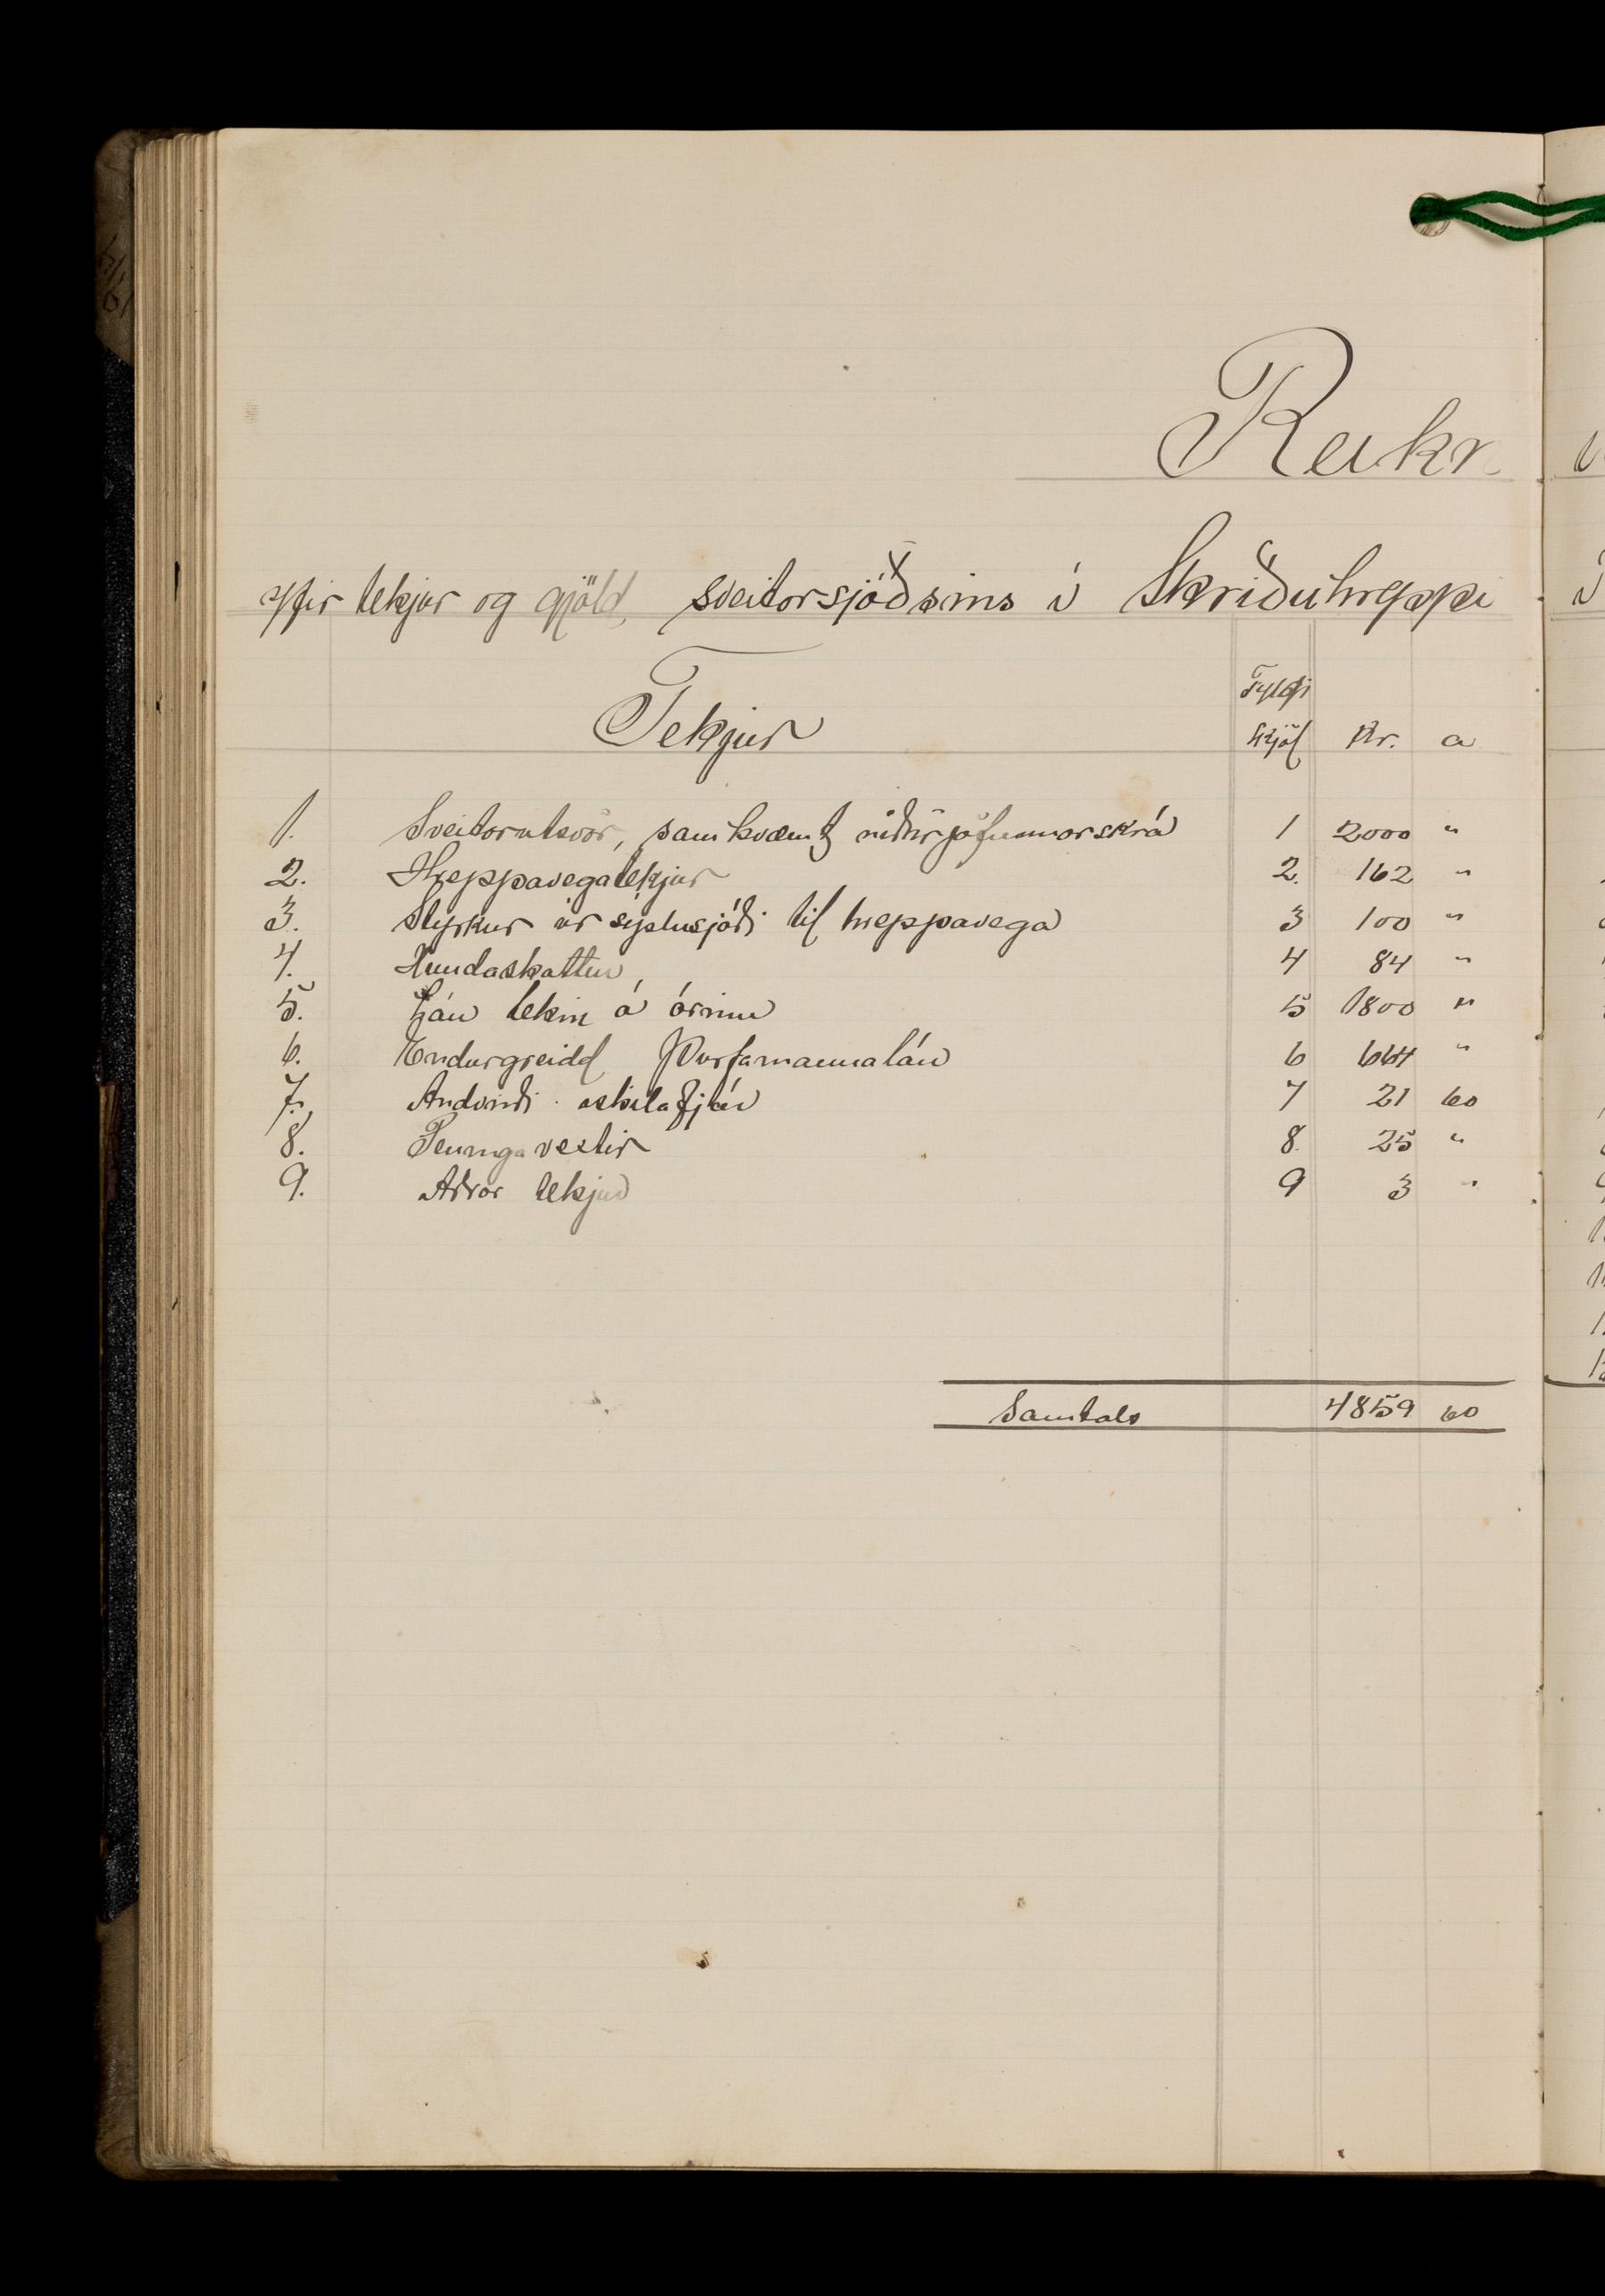 Reikn
yfir tekjur og gjöld sveitarsjóðsins í Skriðuhreppi
Tekjur Fylgi
skjöl Kr. a
1. Sveitarutsvör, samkvæmt niðurjöfnunarskrá 1 2000 "
2. Hreppavegatekjur 2. 162 "
3. Styrkur úr sýslusjóði til hreppavega 3 100 "
4. Hundaskattur 4 84 "
5. Lán tekin á árinu 5 1800 "
6. Endurgreidd þurfamannalán 6 664 "
7. Andvirði óskilafjár 7 21 60
8. Peningavextir 8 25 "
9. Aðrar tekjur 9 3 "
Samtals 4859 60